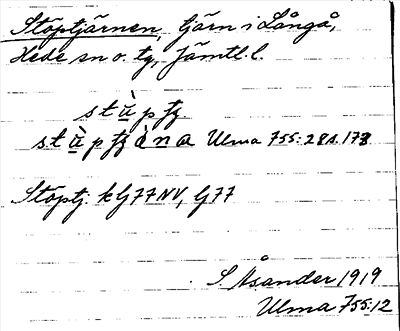 Stöptjärnen, tjärn i Långå,
Hede sn o. tg, Jämtl. l.
Stöptj. k G77NV, G77
S. Åsander 1919
Ulma 755:12
Ulma 755:28 s. 178